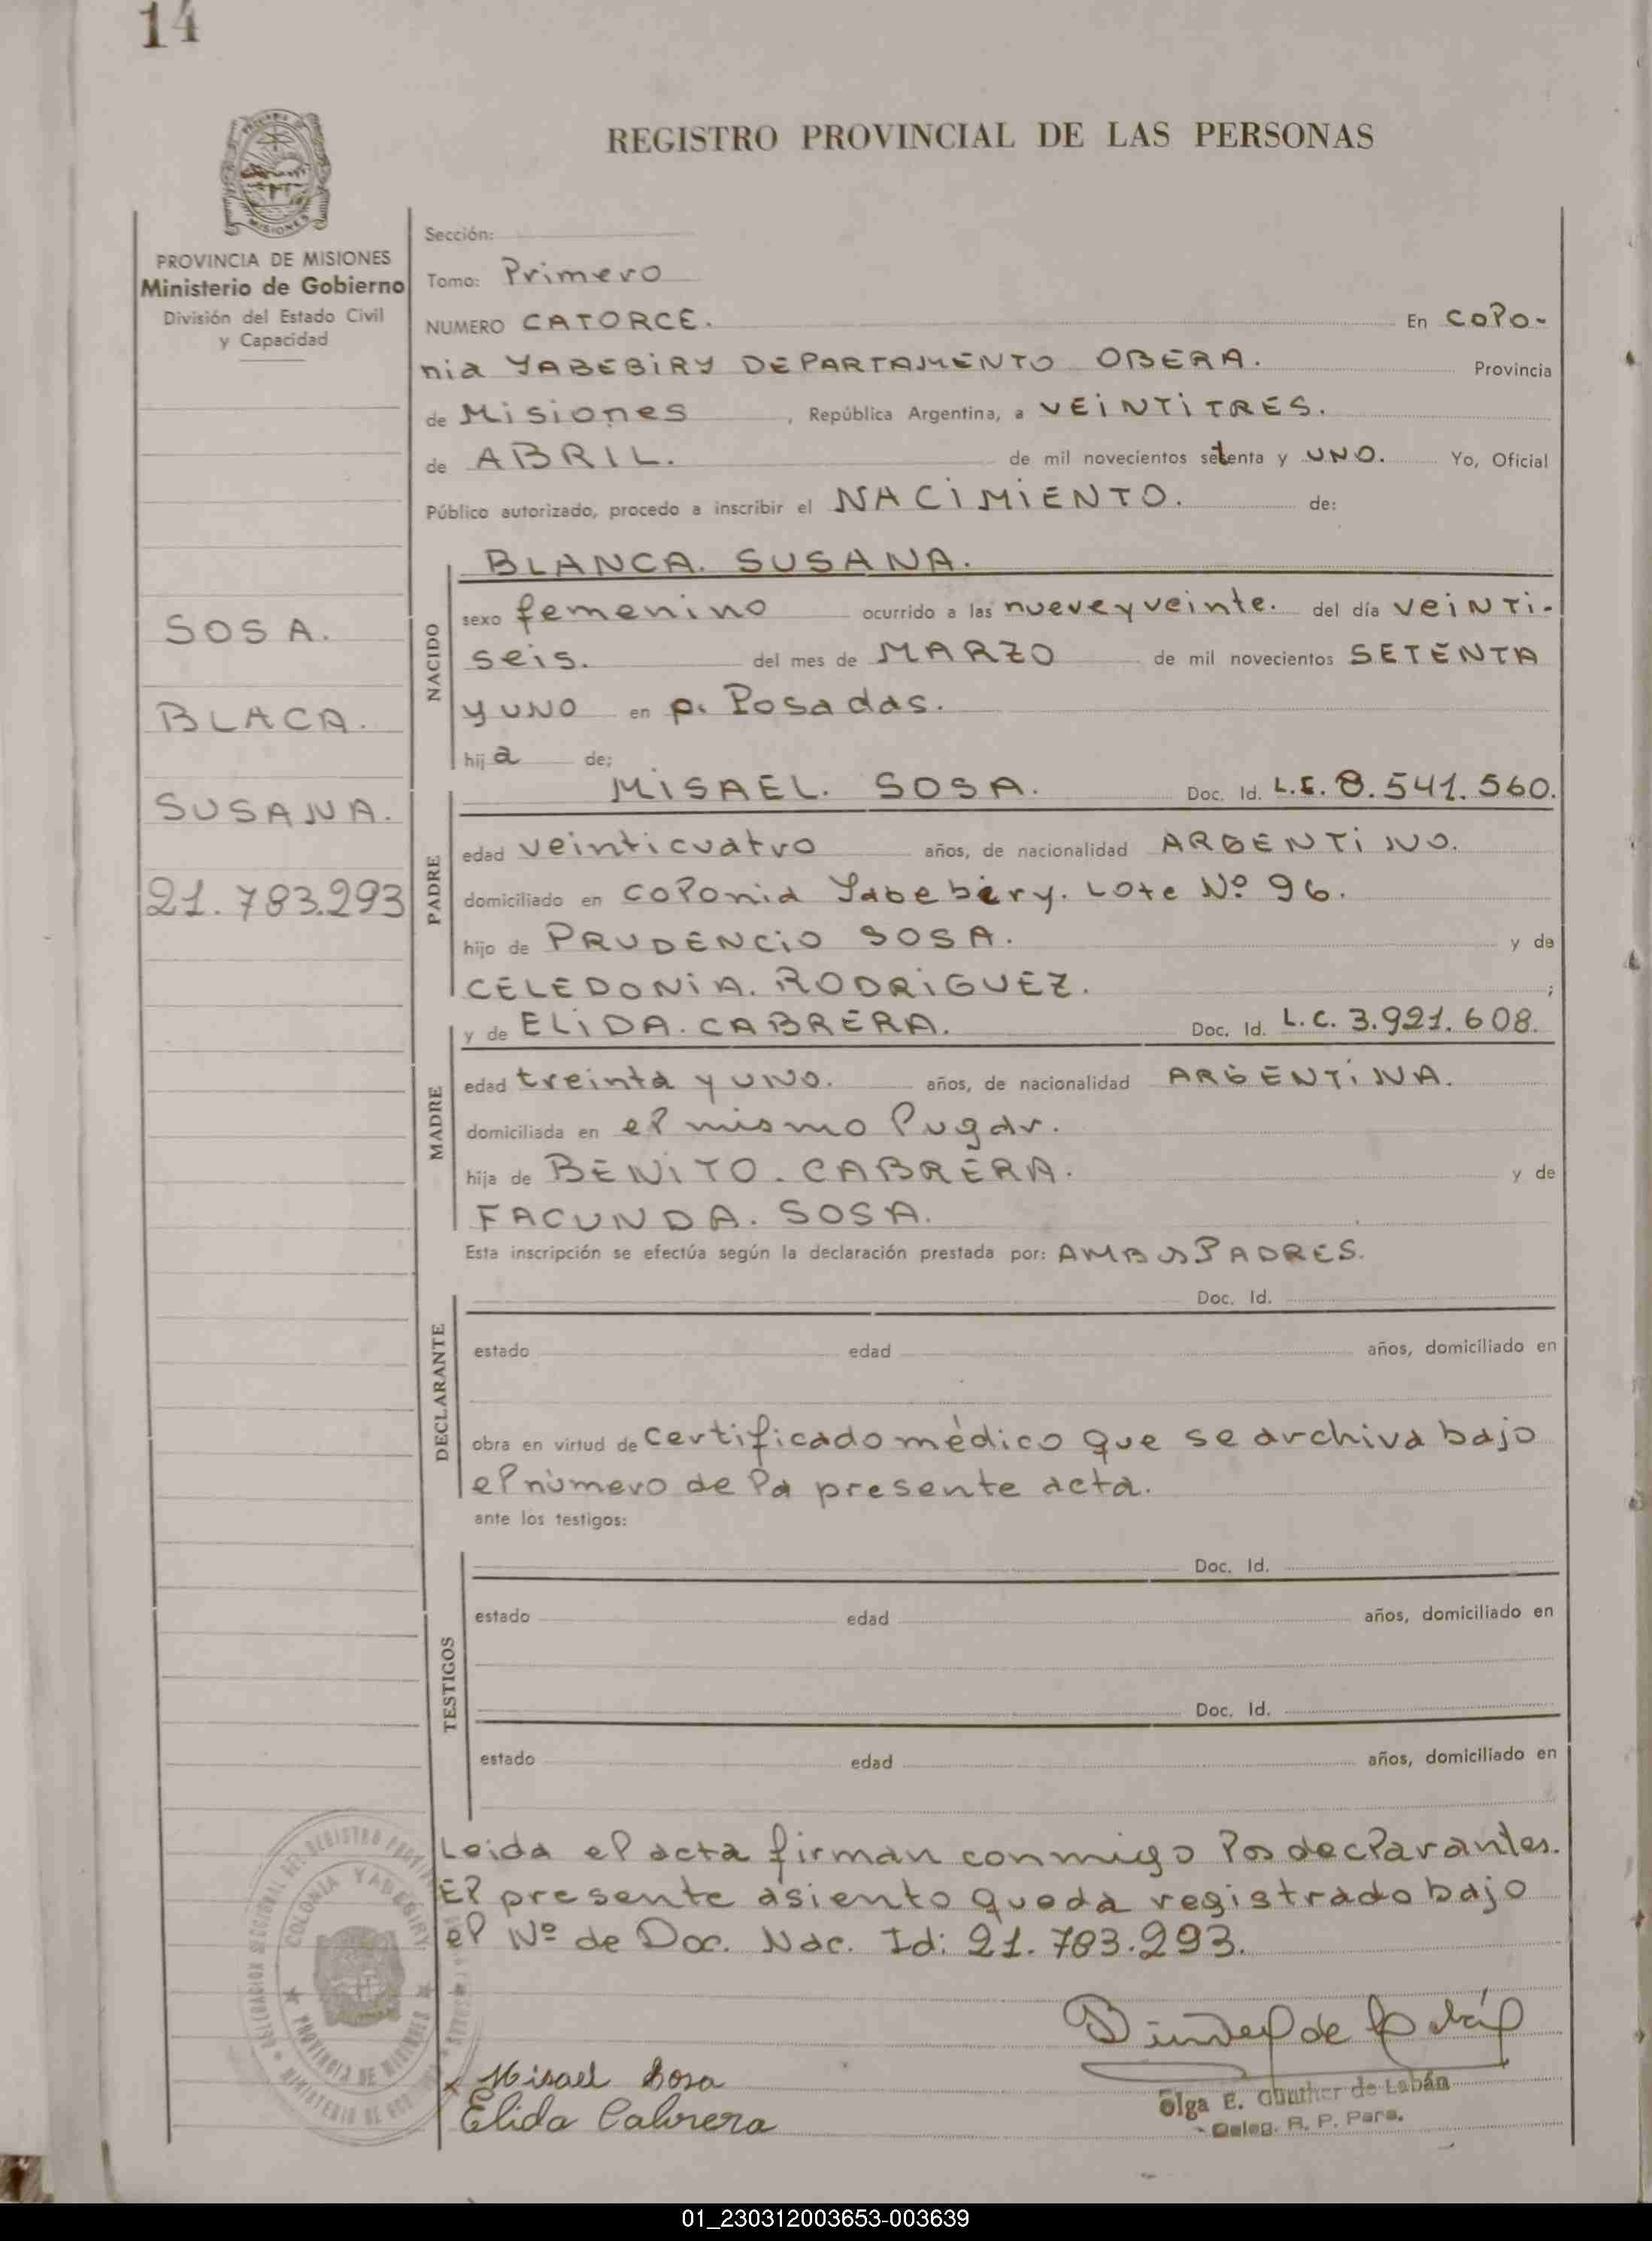 14
REGISTRO PROVINCIAL DE LAS PERSONAS
MISIONES
PROVINCIA DE MISIONES
Ministerio de Gobierno
División del Estado Civil
y Capacidad
SOSA.
BLACA.
SUSANA.
21.783.293
Sección:
Tomo: Primero
NUMERO CATORCE. En Colo-
nia YABEBIRY DEPARTAMENTO OBERA. Provincia
de Misiones, República Argentina, a VEINTITRES.
de ABRIL. de mil novecientos setenta y UNO. Yo, Oficial
Público autorizado, procedo a inscribir el NACIMIENTO. de:
NACIDO
BLANCA. SUSANA.
sexo femenino ocurrido a las nueve y veinte. del día veinti-
seis. del mes de MARZO de mil novecientos SETENTA
y UNO en p. Posadas.
hija de:
PADRE
MISAEL. SOSA. Doc. Id. L.E. 8.541.560.
edad veinticuatro años, de nacionalidad ARGENTINO.
domiciliado en colonia Yabebiry. Lote Nº 96.
hijo de PRUDENCIO SOSA. y de
CELEDONIA. RODRIGUEZ. ;
MADRE
y de ELIDA. CABRERA. Doc. Id. L.C. 3.921.608.
edad treinta y uno. años, de nacionalidad ARGENTINA.
domiciliada en el mismo lugar.
hija de BENITO. CABRERA. y de
FACUNDA. SOSA.
Esta inscripción se efectúa según la declaración prestada por: AMBOS PADRES.
DECLARANTE
Doc. Id.
estado edad años, domiciliado en
obra en virtud de certificado médico que se archiva bajo
el número de la presente acta.
ante los testigos:
TESTIGOS
Doc. Id.
estado edad años, domiciliado en
Doc. Id.
estado edad años, domiciliado en
Leida el acta firman conmigo los declarantes.
El presente asiento queda registrado bajo
el Nº de Doc. Nac. Id: 21.783.293.
COLONIA YABEBIRY
PROVINCIA DE MISIONES
Misael Sosa
Elida Cabrera
Olga E. Günther de Labán
Deleg. R. P. Pers.
01_230312003653-003639